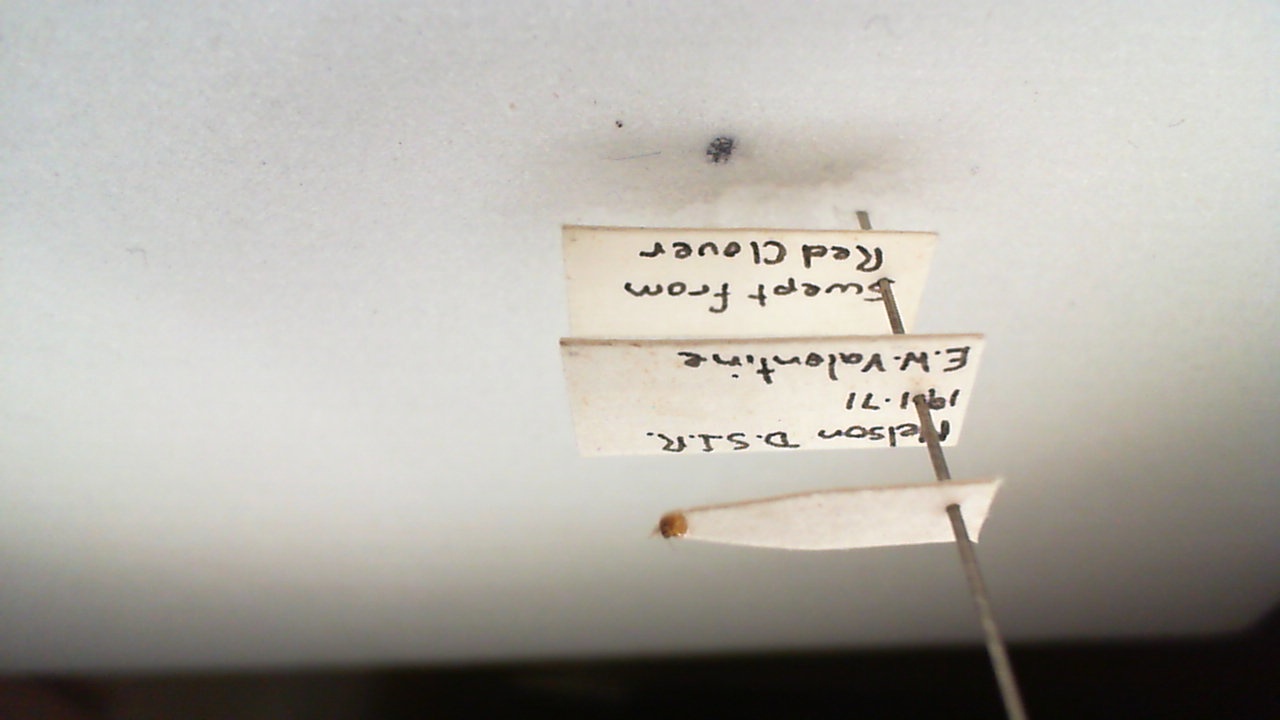 Nelson D.S.I.R.
19.1.71
E.W. Valentine
Swept from
Red Clover